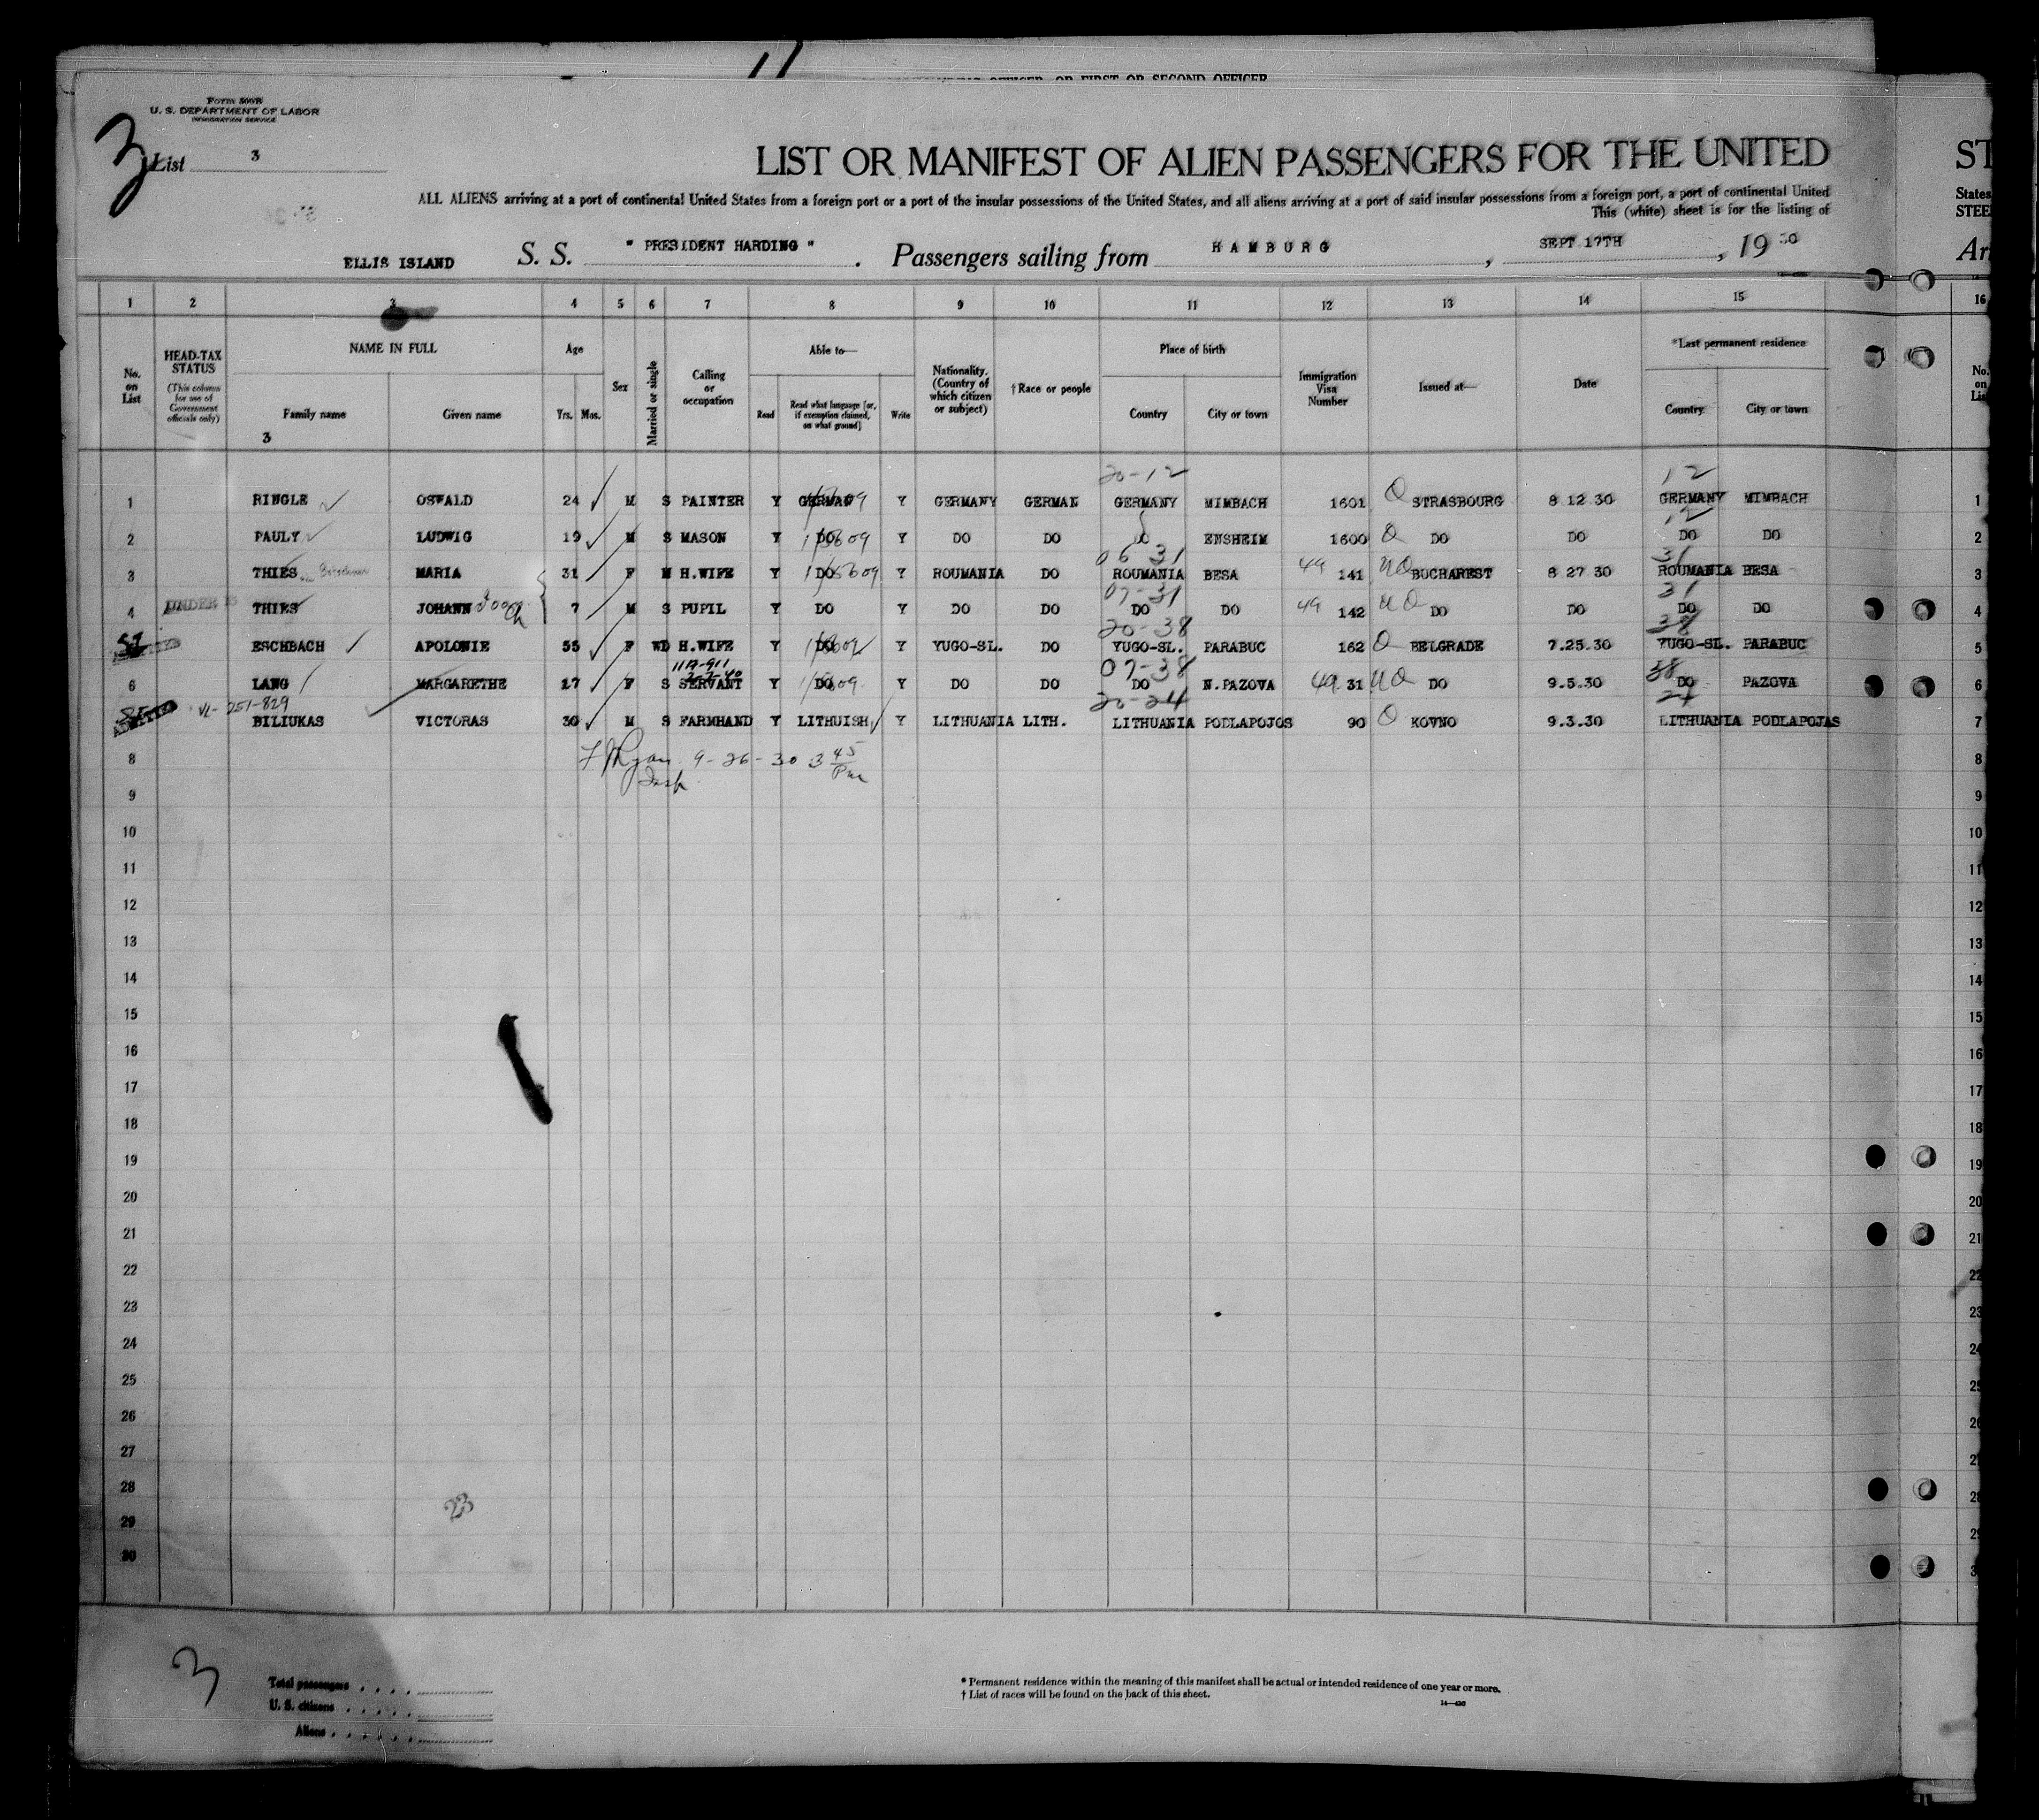 11
COMMANDING OFFICER, OR FIRST OR SECOND OFFICER
Form 500B
U. S. DEPARTMENT OF LABOR
IMMIGRATION SERVICE
3 List 3
LIST OR MANIFEST OF ALIEN PASSENGERS FOR THE UNITED ST
ALL ALIENS arriving at a port of continental United States from a foreign port or a port of the insular possessions of the United States, and all aliens arriving at a port of said insular possessions from a foreign port, a port of continental United States
This (white) sheet is for the listing of STEE
ELLIS ISLAND S. S. " PRESIDENT HARDING " . Passengers sailing from HAMBURG , SEPT 17TH , 19 30 Arr
1 2 3 4 5 6 7 8 9 10 11 12 13 14 15 16
No. on List HEAD-TAX STATUS (This column for use of Government officials only) NAME IN FULL Family name Given name Age Yrs. Mos. Sex Married or single Calling or occupation Able to— Read Read what language [or, if exemption claimed, on what ground] Write Nationality. (Country of which citizen or subject) †Race or people Place of birth Country City or town Immigration Visa Number Issued at— Date *Last permanent residence Country City or town No. on Lis
3
20-12 12
1 RINGLE OSWALD 24 M S PAINTER Y GERMAN Y GERMANY GERMAN GERMANY MIMBACH 1601 STRASBOURG 8 12 30 GERMANY MIMBACH 1
12
2 PAULY LUDWIG 19 M S MASON Y DO Y DO DO DO ENSHEIM 1600 DO DO DO DO 2
06 31 31
3 THIES MARIA 31 F M H.WIFE Y DO Y ROUMANIA DO ROUMANIA BESA 49 141 BUCHAREST 8 27 30 ROUMANIA BESA 3
07-31 31
4 UNDER 16 THIES JOHANN 7 M S PUPIL Y DO Y DO DO DO DO 49 142 DO DO DO DO 4
20-38 38
5 ESCHBACH APOLONIE 55 F WD H.WIFE Y DO Y YUGO-SL. DO YUGO-SL. PARABUC 162 BELGRADE 7.25.30 YUGO-SL. PARABUC 5
07-38 38
6 LANG MARGARETHE 17 F S SERVANT Y DO Y DO DO DO N.PAZOVA 49 31 DO 9.5.30 DO PAZOVA 6
VL-251-829 20-24 24
BILIUKAS VICTORAS 30 M S FARMHAND Y LITHUISH Y LITHUANIA LITH. LITHUANIA PODLAPOJOS 90 KOVNO 9.3.30 LITHUANIA PODLAPOJAS 7
8 Ryan 9-26-30 3 45 Pm 8
Insp
9 9
10 10
11 11
12 12
13 13
14 14
15 15
16 16
17 17
18 18
19 19
20 20
21 21
22 22
23 23
24 24
25 25
26 26
27 27
28 28
23
29 29
30 3
3
Total passengers
U. S. citizens
Aliens
* Permanent residence within the meaning of this manifest shall be actual or intended residence of one year or more.
† List of races will be found on the back of this sheet.